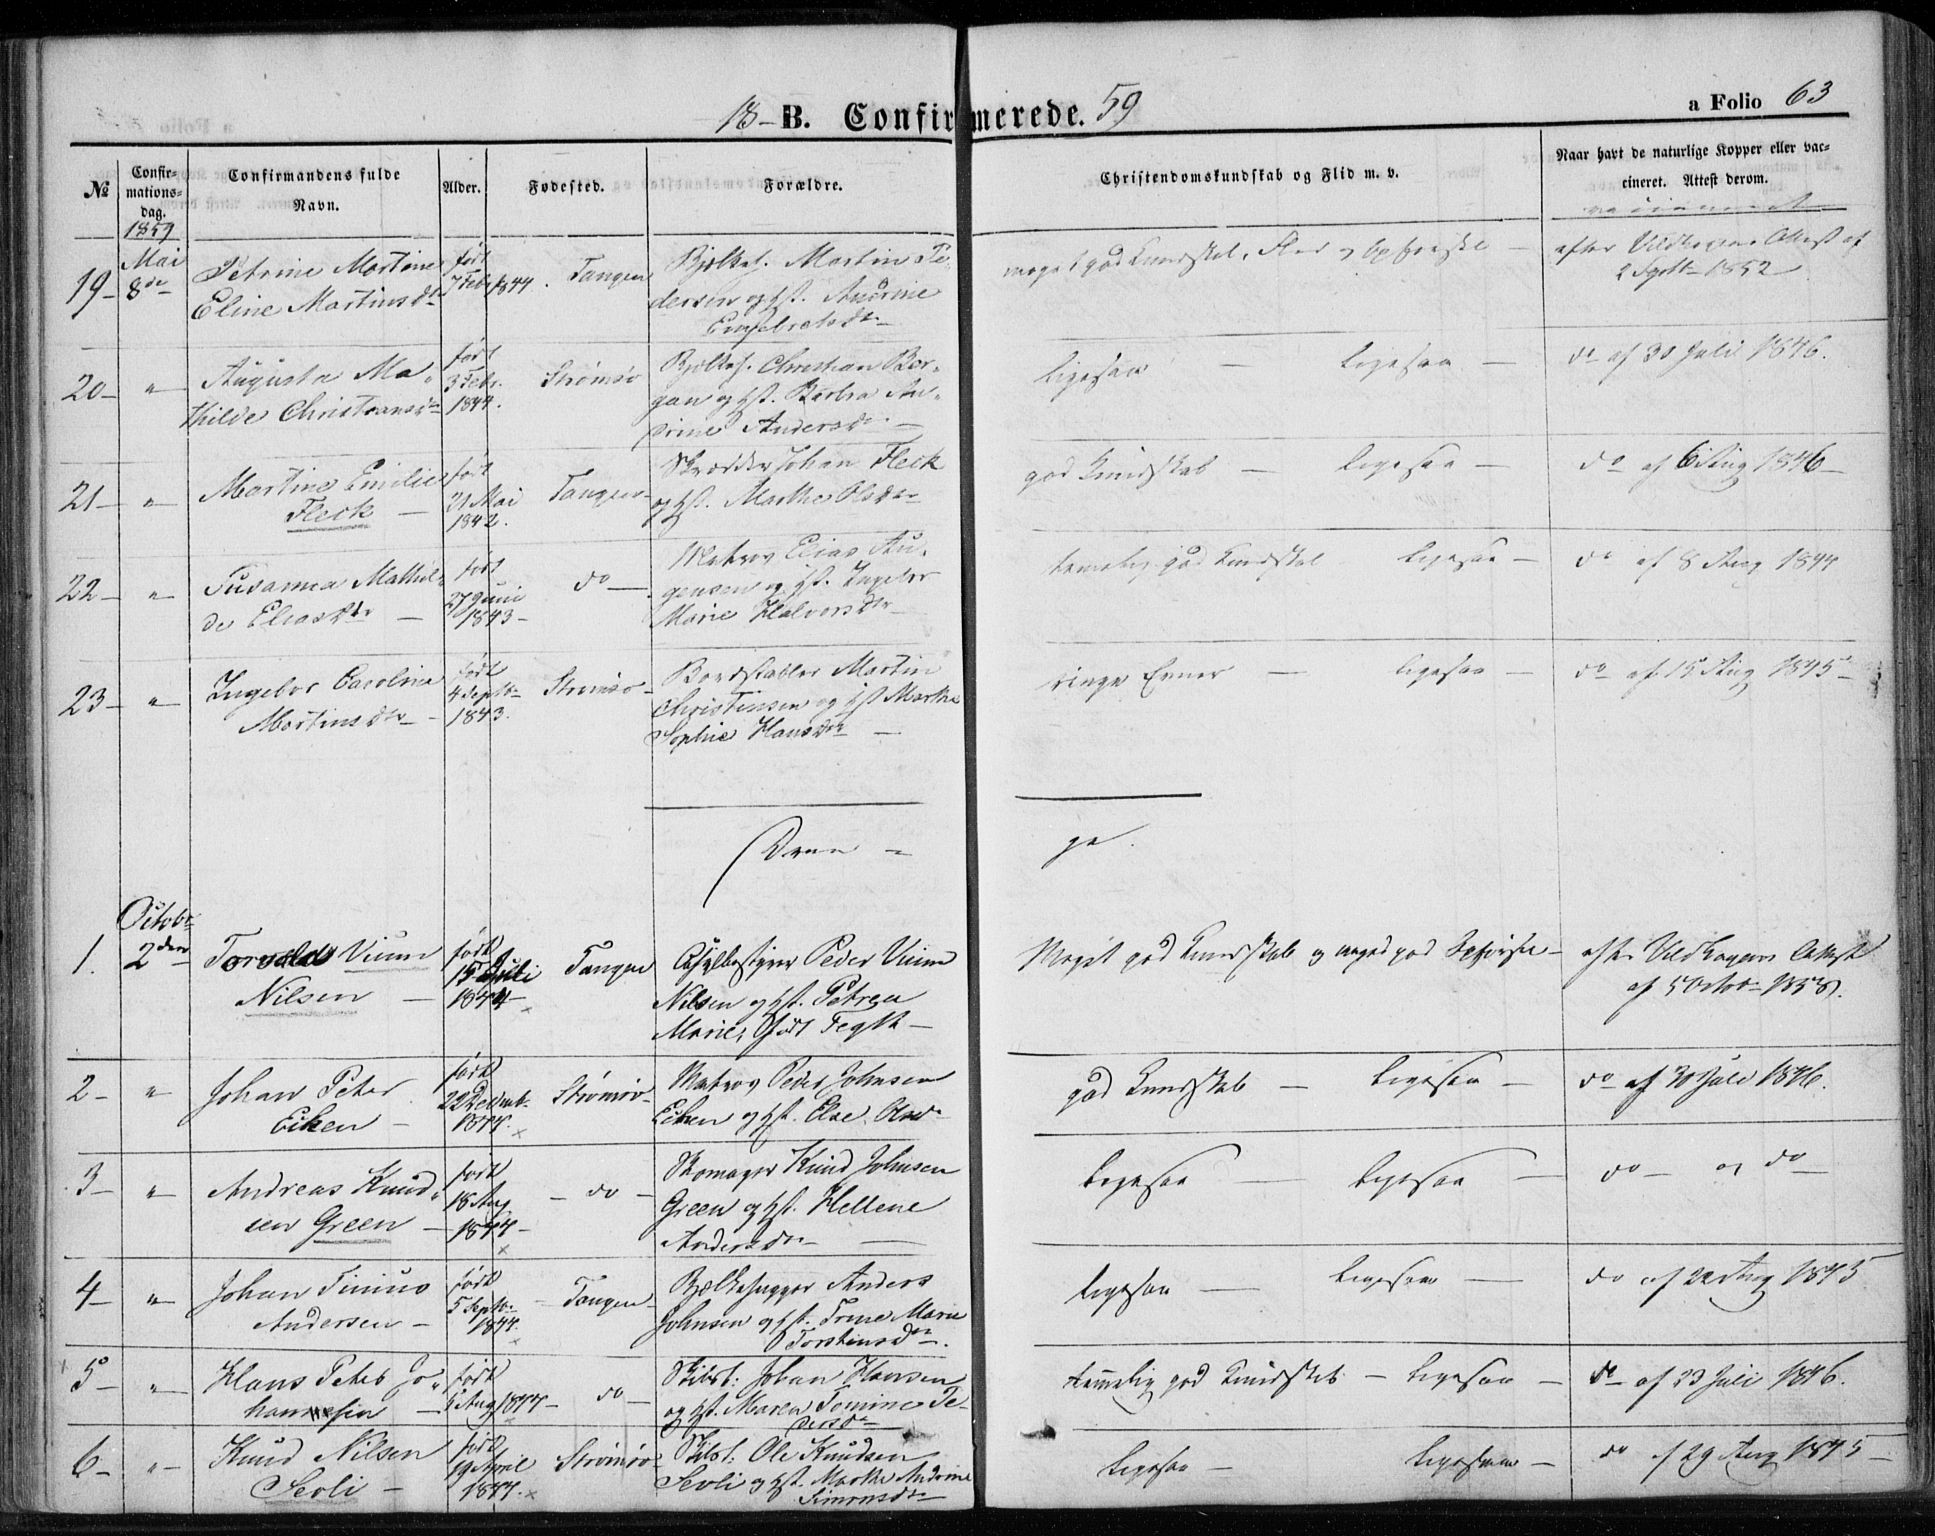 18-B. Confirmerede. 59
a Folio 63
№
Confirmations-dag.
Confirmandens fulde Navn.
Alder.
Fødested.
Forældre.
Christendomskundskab og Flid m. v.
Naar havt de naturlige Kopper eller vaccineret. Attest derom.
1859
19- Mai 8de
Petrine Martine
Eline Martinsdtr
født
7 Febr 1844.
Tangen
Bjelkeh. Martin Pe-
dersen og Hst. Andrine
Engebretsdtr
meget god Kundskab, Flid og Opførsel
efter Vildhagens Attest af
2 Septbr 1852
20- "
Augusta Ma-
thilde Christiansdtr
født
3 Febr.
1844.
Strømsø
Bjelkeh. Christian Bor-
gan og Hst. Barbra An-
drine Andersdtr -
ligesaa - ligesaa -
do af 30 Julii 1846.
21- "
Martine Emilie
Fleck -
født
21 Mai
1842.
Tangen
Skrædder Johan Fleck
og Hst. Marthe Olsdtr
god Kundskab - ligesaa -
do af 6 Aug 1846-
22- "
Susanna Mathil-
de Eliasdtr -
født
27 Juni
1843-
do -
Matros Elias
Hst. Ingebor
Marie Halvorsdtr
temmelig god Kundskab ligesaa -
do af 8 Aug 1844
23- "
Ingebor Caroline
Martinsdtr -
født
4 Septbr
1843.
Strømsø-
Bordstabler Martin
Christensen og Hst Marthe
Sophie Hansdtr -
ringe Evner - ligesaa -
do af 15 Aug 1845-
Dren -
ge.
1. Octobr 2den
Torvald Vium
Nilsen -
født
15 Juli
1844-
Tangen
Asylbestyrer Peder Vium
Nilsen og Hst. Petrea
Marie, født
Meget god Kundskab og meget god Opførsel-
efter Vildhagens Attest
af 5 Octobr 1858.
2- "
Johan Peter
Eiken -
født
22 Decembr
1844.
Strømsø-
Matros Peder Johnsen
Eiken og Hst. Else Olsdtr
god Kundskab - ligesaa -
do af 30 Juli 1846.
3- "
Andreas Knud-
sen Green -
født
18 Aug
1844-
- do -
Skomager Knud Johnsen
Green og Hst. Hellene
Andersdtr -
ligesaa - ligesaa -
do - af do -
4- "
Johan Tinius
Andersen -
født
5 Septbr
1844.
- Tangen-
Bjelkehugger Anders
Johnsen og Hst. Trine Marie
Torstensdtr.
ligesaa - ligesaa -
do af 22 Aug 1845
5- "
Hans Peter Jo-
hannesen -
født
Aug 1844-
do -
Skibst: Johan Hansen
og Hst. Maren Tomine Pe-
dersdtr
temmelig god Kundskab - ligesaa -
do af 23 Juli 1846.
6- "
Knud Nilsen
Seoli -
født
19 April
1844.
Strømsø-
Skibst: Ole Knudsen
Seoli og Hst. Marthe Andrine
Simonsdtr
ligesaa - ligesaa -
do af 29 Aug 1845 -